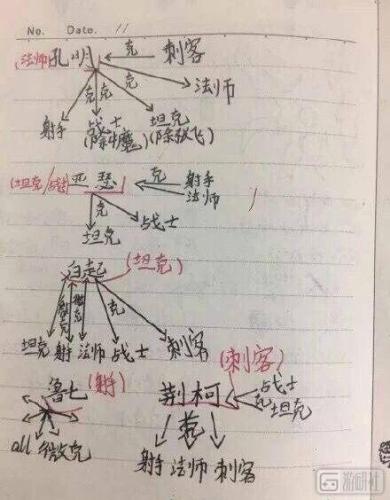 No. Date. 11
法师 孔明 克 刺客
克 克 法师
射手 战士 坦克
(除牛魔) (除张飞)
(坦克/战士) 亚瑟 克 射手
法师
克 战士
坦克
白起 (坦克)
克 克
坦克 射 法师 战士 刺客
鲁七 (射) (刺客)
荆柯 战士
克 坦克
all 微克 克
射手 法师 刺客
游研社